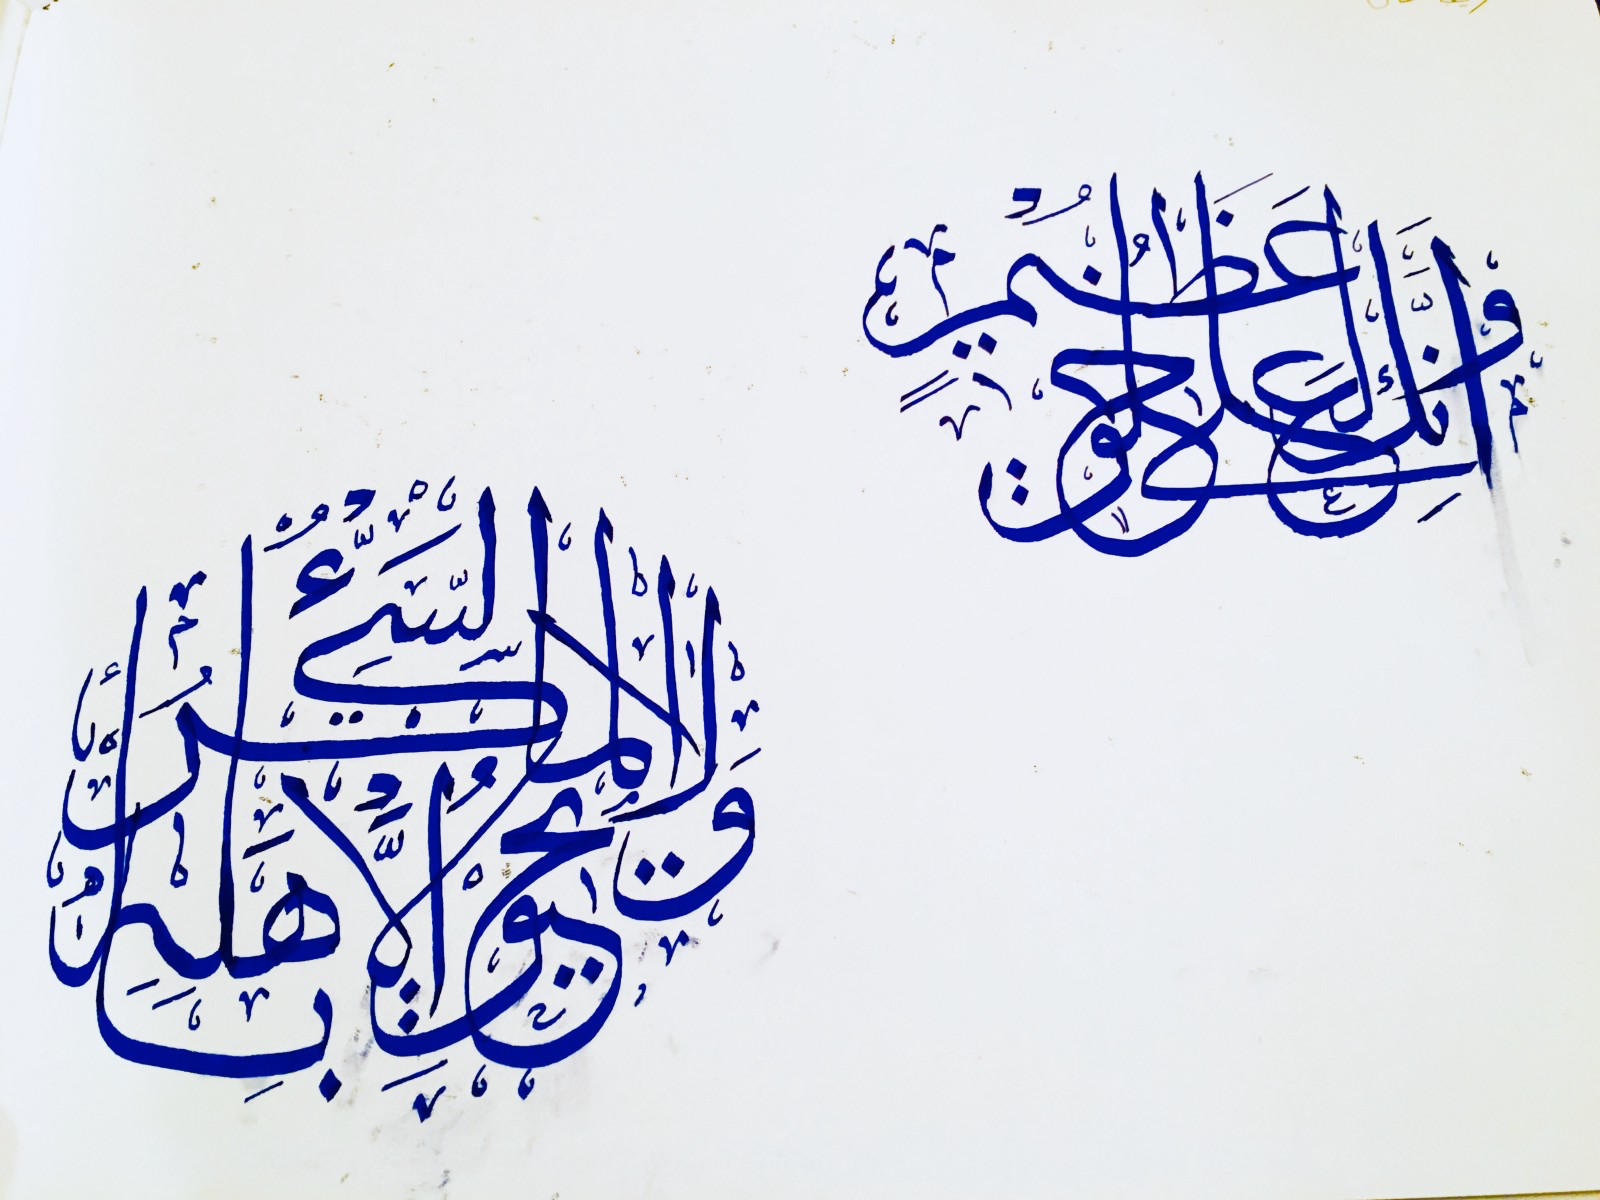 وَإِنَّكَ لَعَلَىٰ خُلُقٍ عَظِيمٍ
وَلَا يَحِيقُ الْمَكْرُ السَّيِّئُ إِلَّا بِأَهْلِهِ